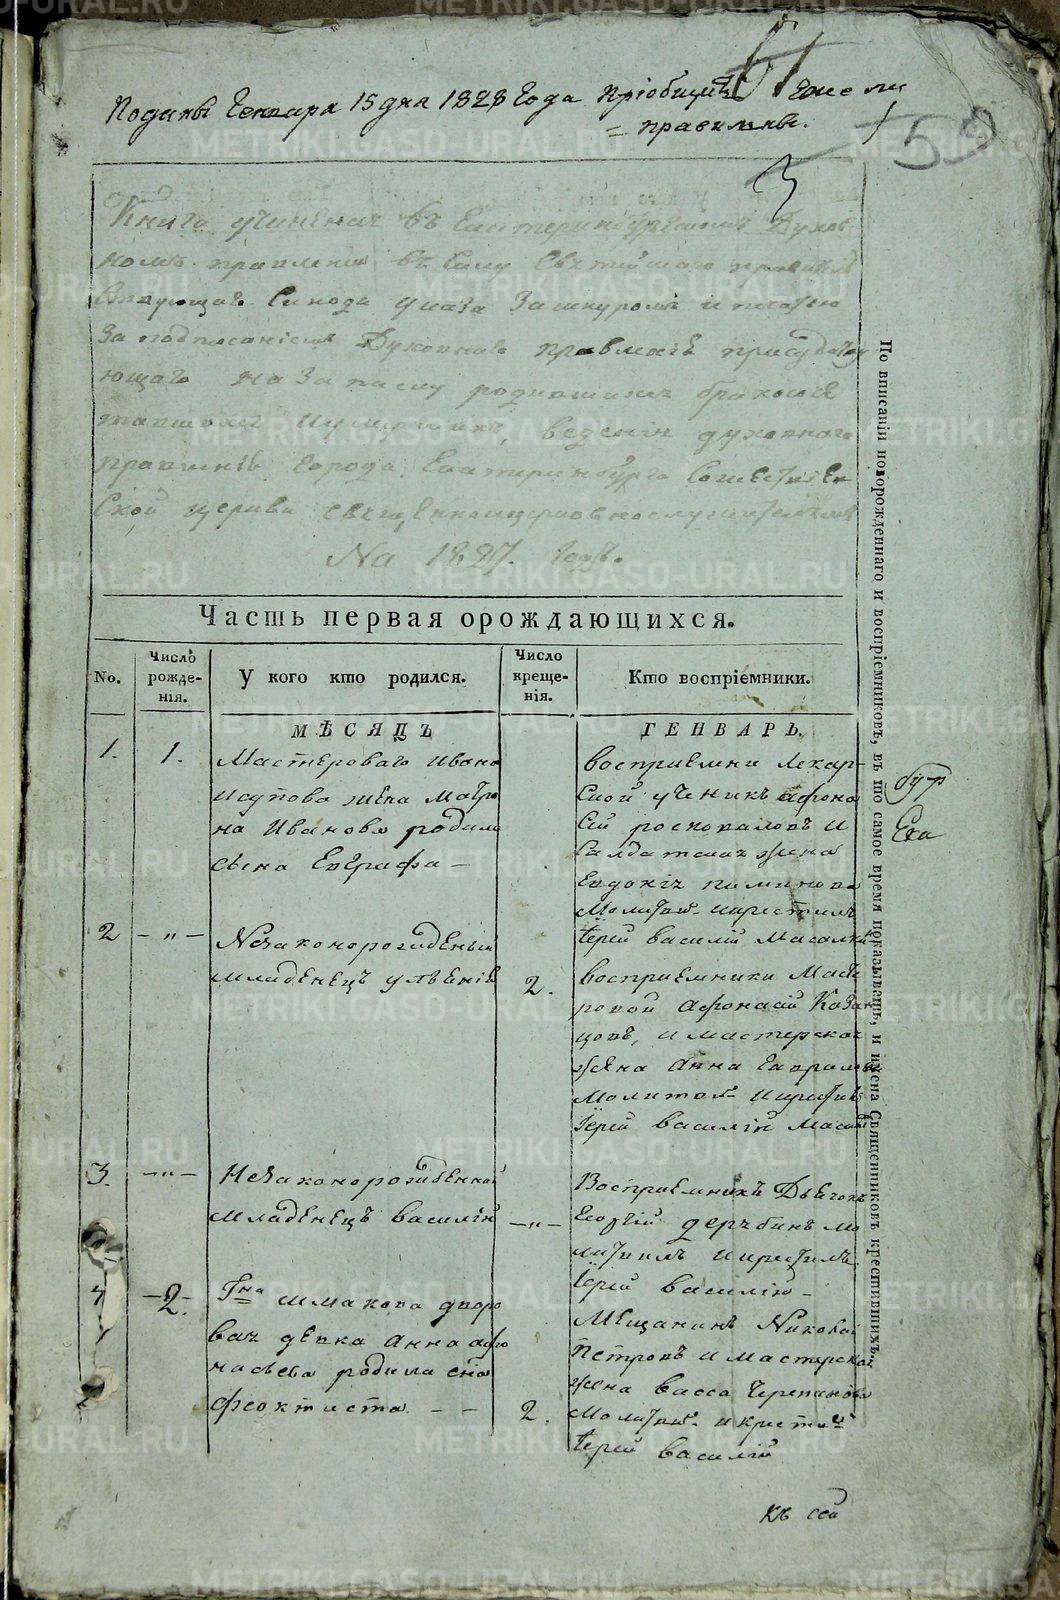 Поданы Генваря 15 дня 1828 Года
правилны.
59
3
Книга учиненая въ Екатеринбургскомъ Духов
номъ правлении въ Силу Святейшаго правител
Синода указа За шнуромъ и печатью
За подписаниемъ Духовнаго правления присудству
ющаго на Записку родившихся бракосоче
тавшихся и умершихъ, ведения духовнаго
правления Города Екатеринбурга
Ской церкви священноцерковнослужителямъ
На 1827. Годъ.
Часть первая орождающихся.
No.
Число рожденія.
У кого кто родился.
Число крещенія.
Кто воспріемники.
МѢСЯЦЪ
ГЕНВАРЬ.
1.
1.
Мастероваго Ивана
Исупова жена Матре
на Иванова родила
сына Евграфа —
восприемни Лекар-
ской ученикъ Афона
сий росковаловъ и
Салдатская жена
Евдокия пиминова
Молитв. и крестилъ
Іерей василий
2
— „ —
Незаконорожденый
младенецъ
2.
восприемники Масте
ровой Афонасий Казан
цовъ, и мастерская
жена Анна Гаврилов
молитв. и крестилъ
Іерей василий
3.
— „ —
Незаконорожденной
младенецъ василий
— „ —
Восприемникъ Дьячокъ
Георгий дерябинъ мо
литвилъ и крестилъ
Іерей василий —
4
— 2. —
Гна шмакова дворо
вая девка Анна афо
насьева родила сна
феоктиста — —
2.
Мещанинъ Николай
Петровъ и мастерская
жена васса Черепанова
Молитв. и крести
Іерей василий
По вписаніи новорожденнаго и воспріемниковъ, въ то самое время показывать, и имена Священниковъ крестившихъ.
къ сей
METRIKI.GASO-URAL.RU